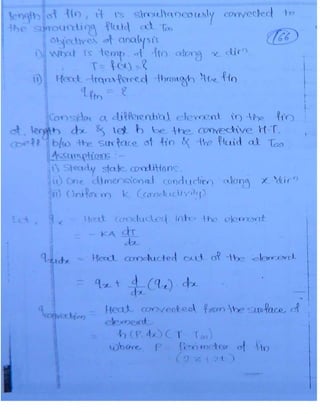 length of fin, it is simultaneously convected to
the surrounding fluid at T∞
166
objectives of analysis
i) what is temp of fin along x dirn
T = f(x) = ?
ii) Heat transferred through the fin
q fin = ?
Consider a differential element in the fin
of length dx & let h be the convective H.T.
coeff b/w the surface of fin & the fluid at T∞
Assumptions :-
i) Steady state conditions.
ii) One dimensional conduction along x dirn
iii) Uniform k (conductivity)
qx = Heat conducted into the element
= - KA dT/dx
qx+dx = Heat conducted out of the element
= qx + d/dx (qx) dx
qconvection = Heat convected from the surface of
element
= h (P.dx) (T - T∞)
where P = Perimeter of fin